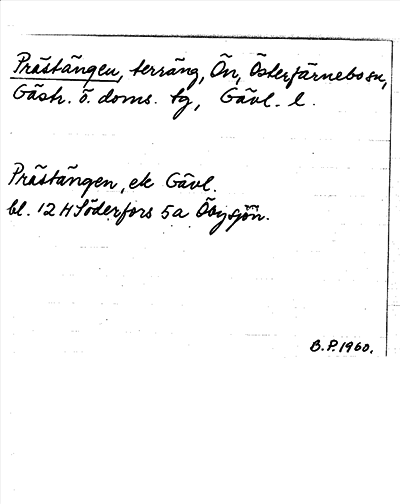 Prästängen, terräng, Ön, Österfärnebo sn,
Gästr. ö. doms. tg, Gävl. l.
Prästängen, ek Gävl.
bl. 12 H Söderfors 5a Öbysjön.
B.P. 1960.